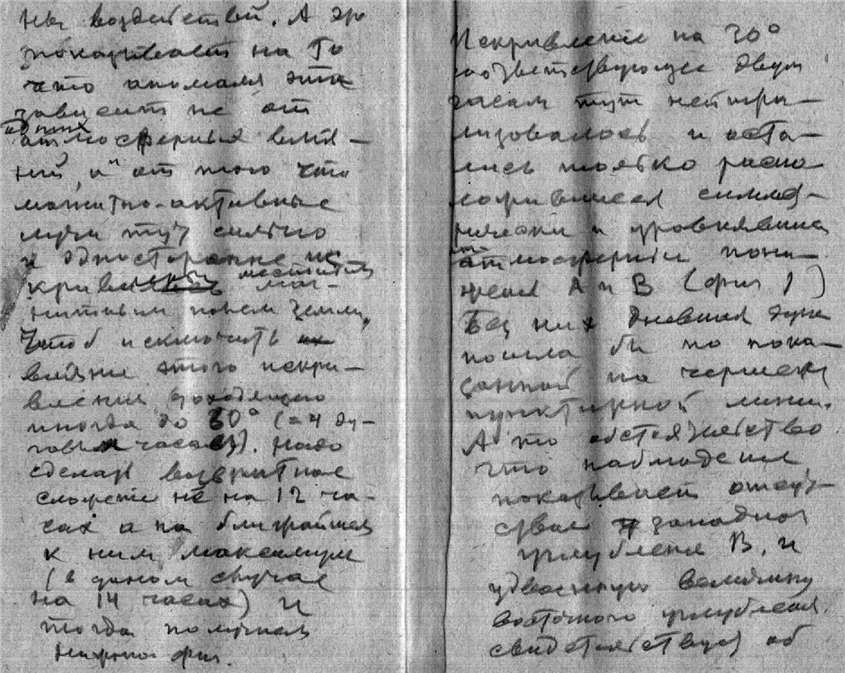 ны воздействий. А это
показывает на то
что аномалия эта
зависит не от
одних
атмосферных влия-
ний, а от того что
магнитно-активные
лучи тут сильно
и односторонне ис
местным
кривлены маг-
нитным полем Земли.
Чтоб исключить
влияние этого искри-
вления доходящего
иногда до 60° (=4 ду-
говых часов). надо
сделать возвратное
сложение не на 12 ча-
сах а на ближайшем
к ним максимуме
(в данном случае
на 14 часах) и
тогда получаем
фиг.
Искривление на 30°
соответствующее двум
часам тут нейтра-
лизовалось и оста-
лись только распо
ложившиеся симмет-
рически и
атмосферные пони-
жения А и В (фиг 1)
Без них дневная дуга
пошла бы по пока-
занной на чертеже
пунктирной линии.
А то обстоятельство
что наблюдение
показывает отсут-
ствие западного
углубления В. и
удвоенную величину
восточного углубления
свидетельствует об